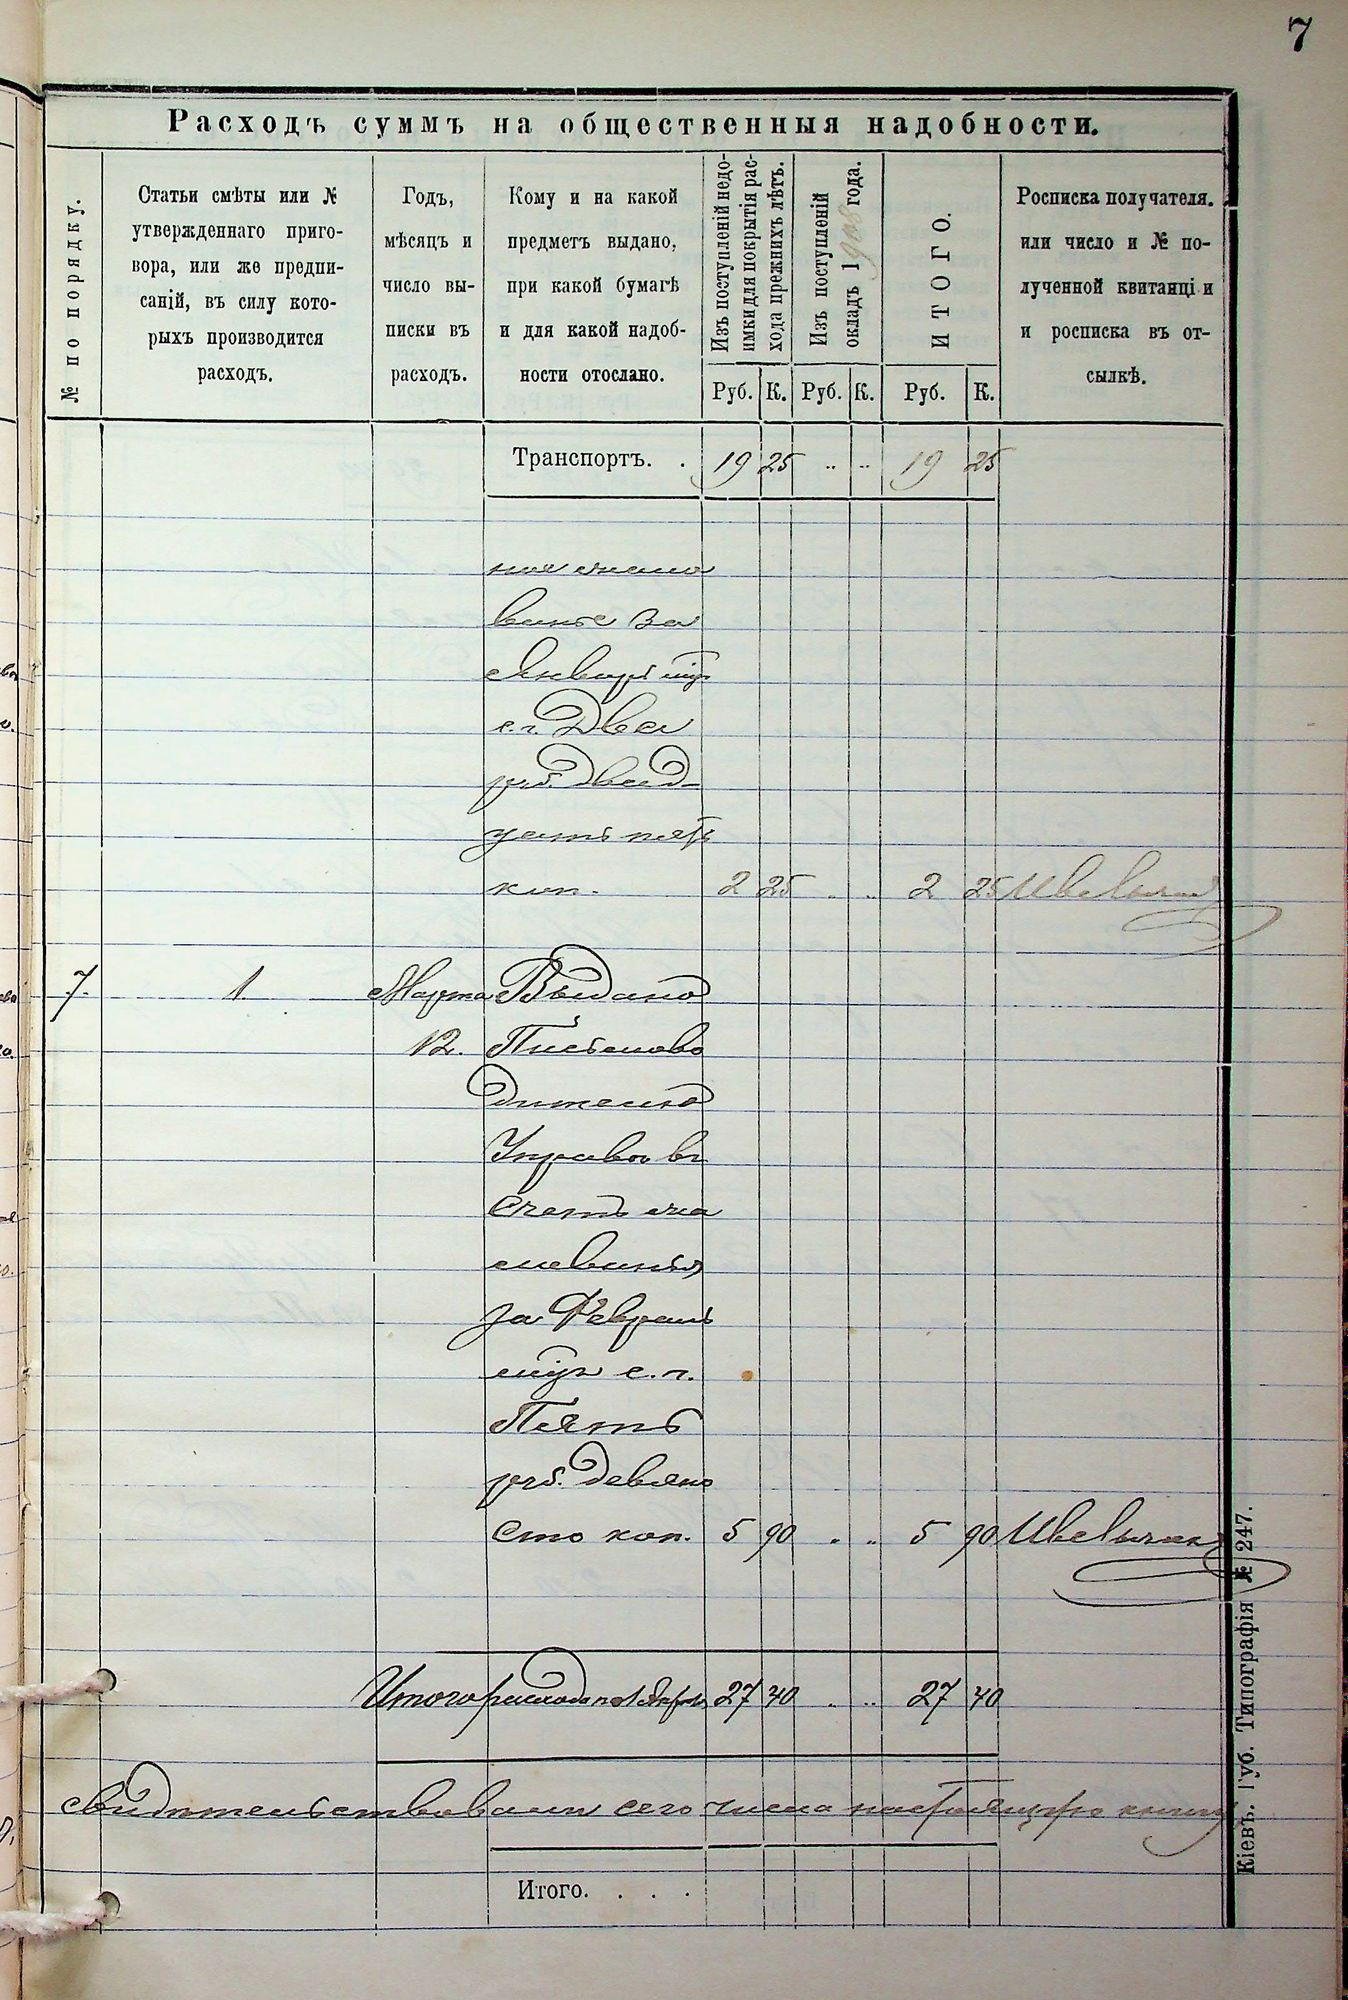 7
Расходъ суммъ на общественныя надобности.
№ по порядку.
Статьи смѣты или №
утвержденнаго приго-
вора, или же предпи-
саній, въ силу кото-
рыхъ производится
расходъ.
Годъ,
мѣсяцъ и
число вы-
писки въ
расходъ.
Кому и на какой
предметъ выдано,
при какой бумагѣ
и для какой надоб-
ности отослано.
Изъ поступленій недо-
имки для покрытія рас-
хода прежнихъ лѣтъ.
Изъ поступленій
окладъ 1908 года.
ИТОГО.
Росписка получателя.
или число и № по-
лученной квитанці и
и росписка въ от-
сылкѣ.
Руб. К. Руб. К. Руб. К.
Транспортъ. . 19 25 .. .. 19 25
ное жало
ванье за
Январь мць
с. г. Два
руб. двад-
цать пять
коп. 2 25 . .. 2 25
7. 1. Марта Выдано
12. Письмово
дителю
Управы въ
счетъ жа
лованья
за Февраль
мць с. г.
Пять
руб. девяно
сто коп. 5 90 . .. 5 90
Итого расхода по 1 Апрѣля 27 40 . .. 27 40
свидѣтельствовали сего числа настоящую книгу
Итого. . . .
Кіевъ. Губ. Типографія № 247.